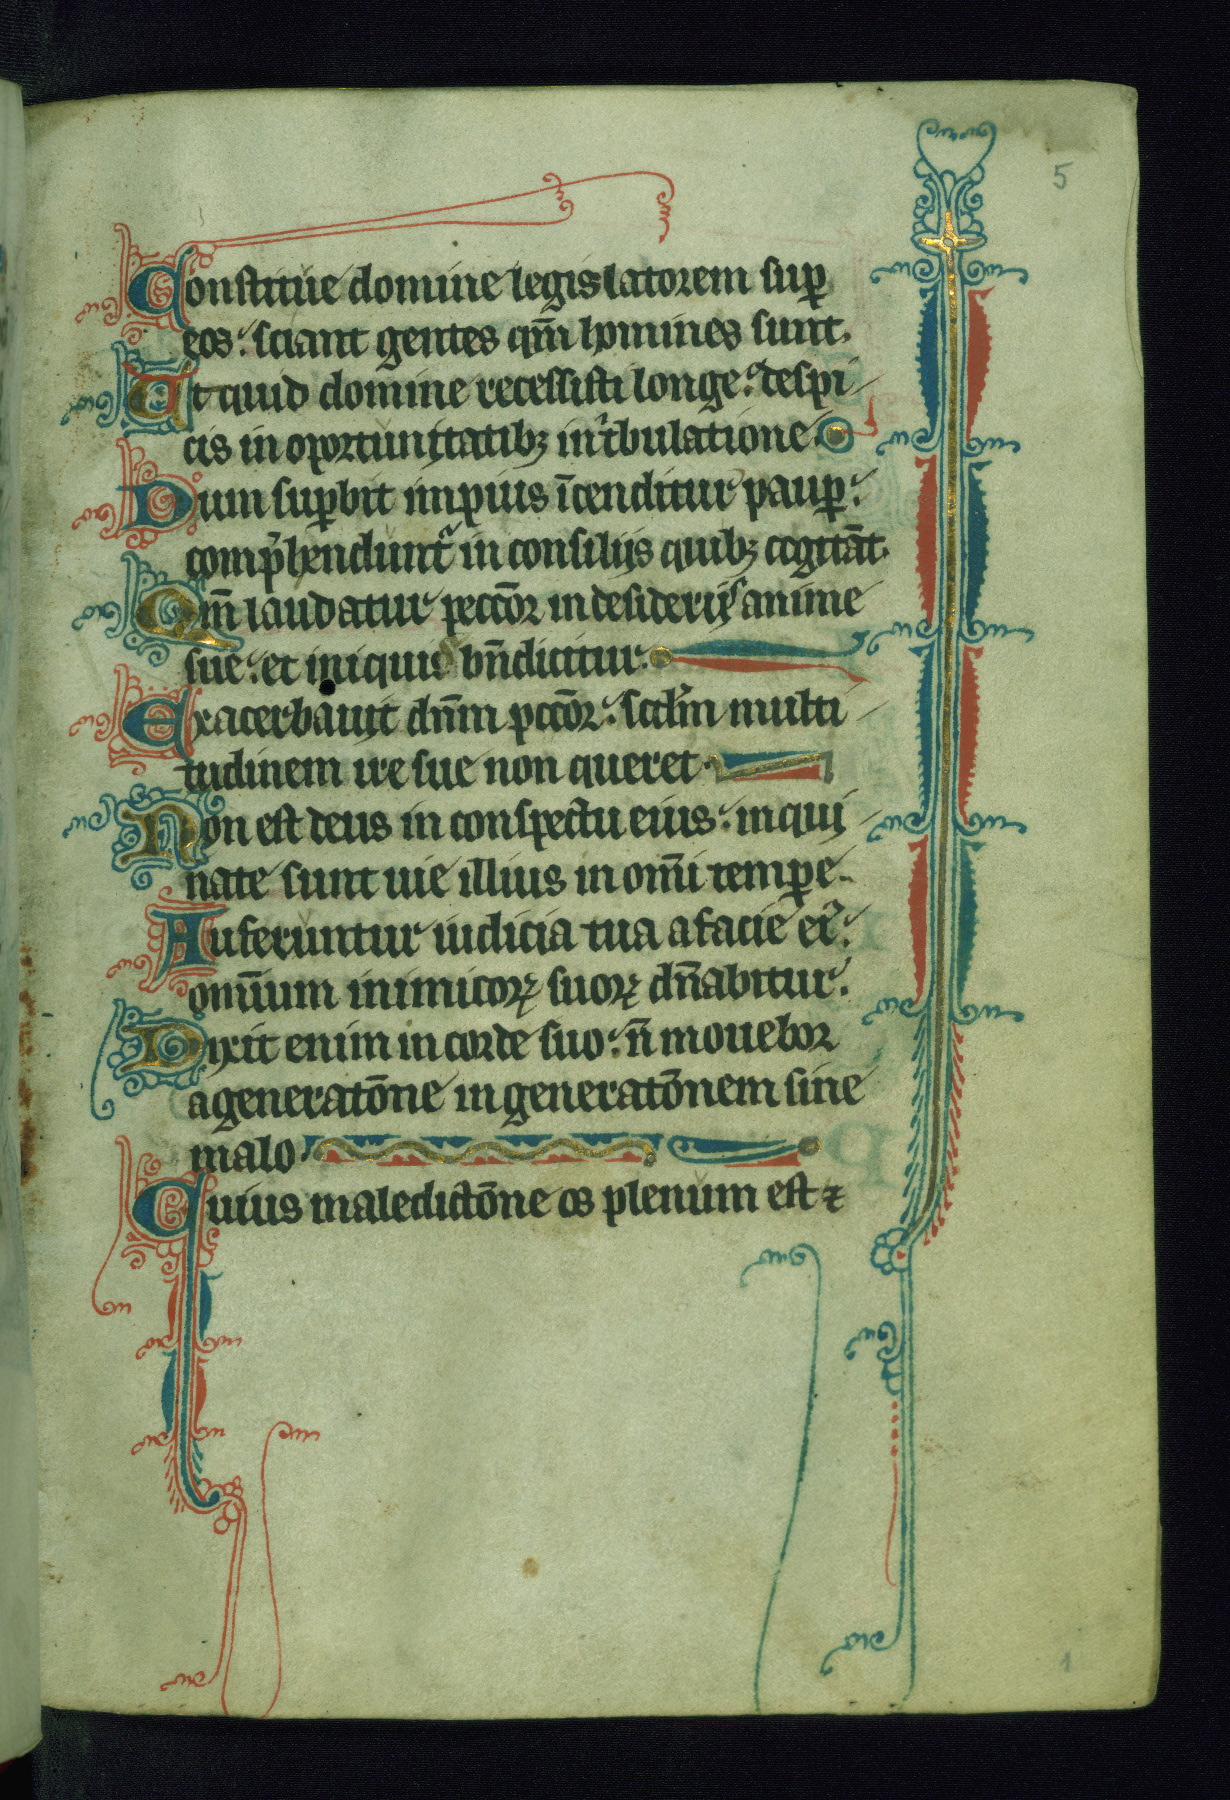 5
Constitue domine legislatorem sup̲
eos: sciant gentes qm̄ homines sunt.
Ut quid domine recessisti longe: despi
cis in oportunitatibꝫ in tͥbulatione
Dum suꝑbit impius īcenditur pauꝑ:
comp̄hendunt᷑ in consilijs quibꝫ cogitāt.
Qm̄ laudatur pecc̄or in desiderijs anime
sue: et iniquus bn̄dicitur.
Exacerbauit dn̄m pcc̄or: scd̄m multi
tudinem ire sue non queret
Non est deus in conspectu eius: inqui
nate sunt uie illius in om̄i tempe.
Auferuntur iudicia tua a facie ei᷑:
omnium inimicoꝝ suoꝝ dn̄abitur.
Dixit enim in corde suo: n̄ mouebor
a generatōne in generatōnem sine
malo
Cuius maledictōne os plenum est ⁊